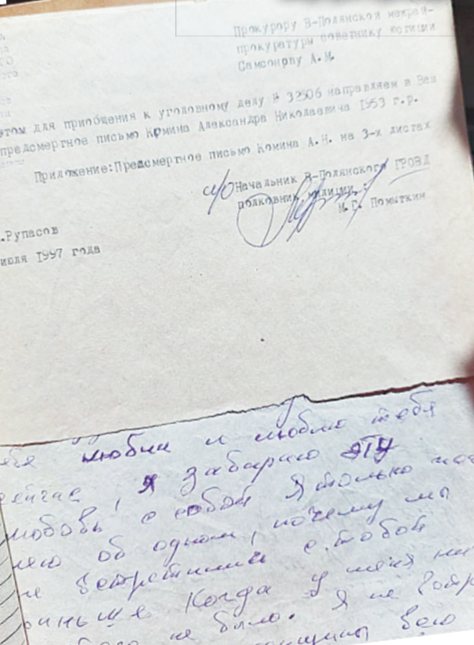 Прокурору В-Полянской межрай-
прокуратуры советнику юстиции
Самсонову А.М.
этом для приобщения к уголовному делу № 32506 направляем в Ваш
предсмертное письмо Комина Александра Николаевича 1953 г.р.
Приложение:Предсмертное письмо Комина А.Н. на 3-х листах
И/О Начальник В-Полянского ГРОВД
полковник милиции
И.Г. Помыткин
.Рупасов
июля 1997 года
любил и люблю тебя
сейчас, я забираю эту
любовь с собой Я только
об одном, почему мы
не встретились с тобой
раньше Когда у меня
не было. Я не
всю